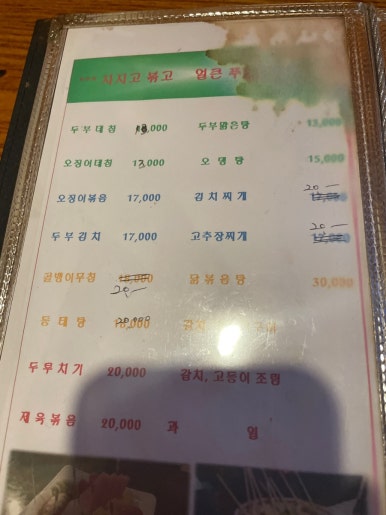 지지고 볶고 얼큰
두부데침 ,000 두부맑은탕 13,000
오징어데침 13,000 오뎅탕 15,000
오징어볶음 17,000 김치찌개 20
두부김치 17,000 고추장찌개 20
골뱅이무침 18,000 20 닭볶음탕 30,000
동태탕 20,000 갈치
두루치기 20,000 갈치, 고등어 조림
제육볶음 20,000 과 일